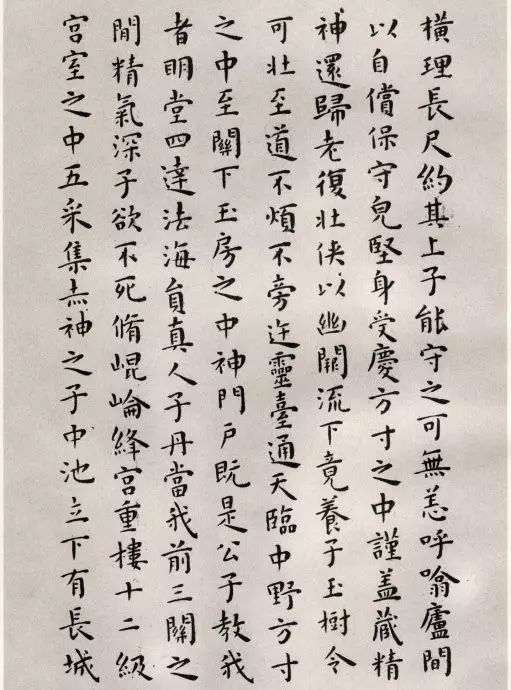 橫理長尺約其上子能守之可無恙呼噏廬間
以自償保守皃堅身受慶方寸之中謹盖蔵精
神還歸老復壯俠以幽闕流下竟養子玉樹令
可壯至道不煩不旁迕靈臺通天臨中野方寸
之中至關下玉房之中神門戶既是公子教我
者明堂四達法海員真人子丹當我前三關之
間精氣深子欲不死脩崐崘絳宮重樓十二級
宮室之中五采集赤神之子中池立下有長城